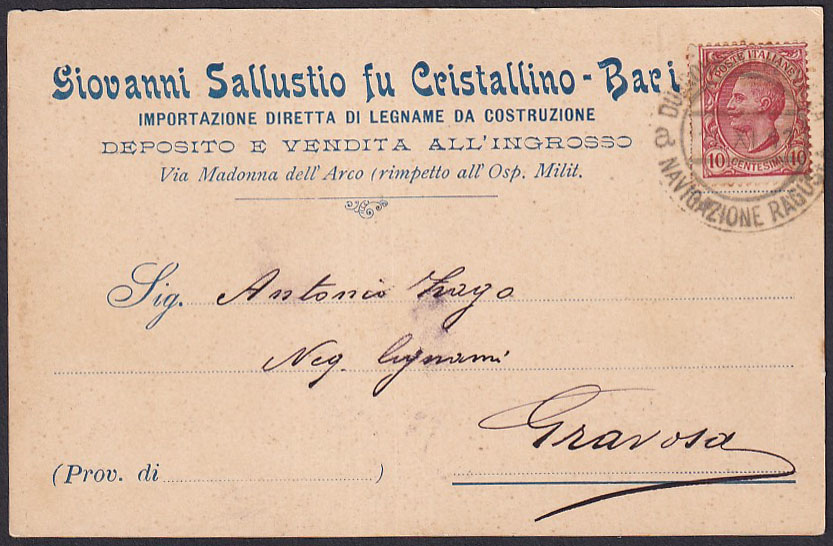 Giovanni Sallustio fu Cristallino - Bari
IMPORTAZIONE DIRETTA DI LEGNAME DA COSTRUZIONE
DEPOSITO E VENDITA ALL'INGROSSO
Via Madonna dell'Arco (rimpetto all'Osp. Milit.
POSTE ITALIANE
10 CENTESIMI 10
NAVIGAZIONE
Sig. Antonio
Neg. legnami
Gravosa
(Prov. di )